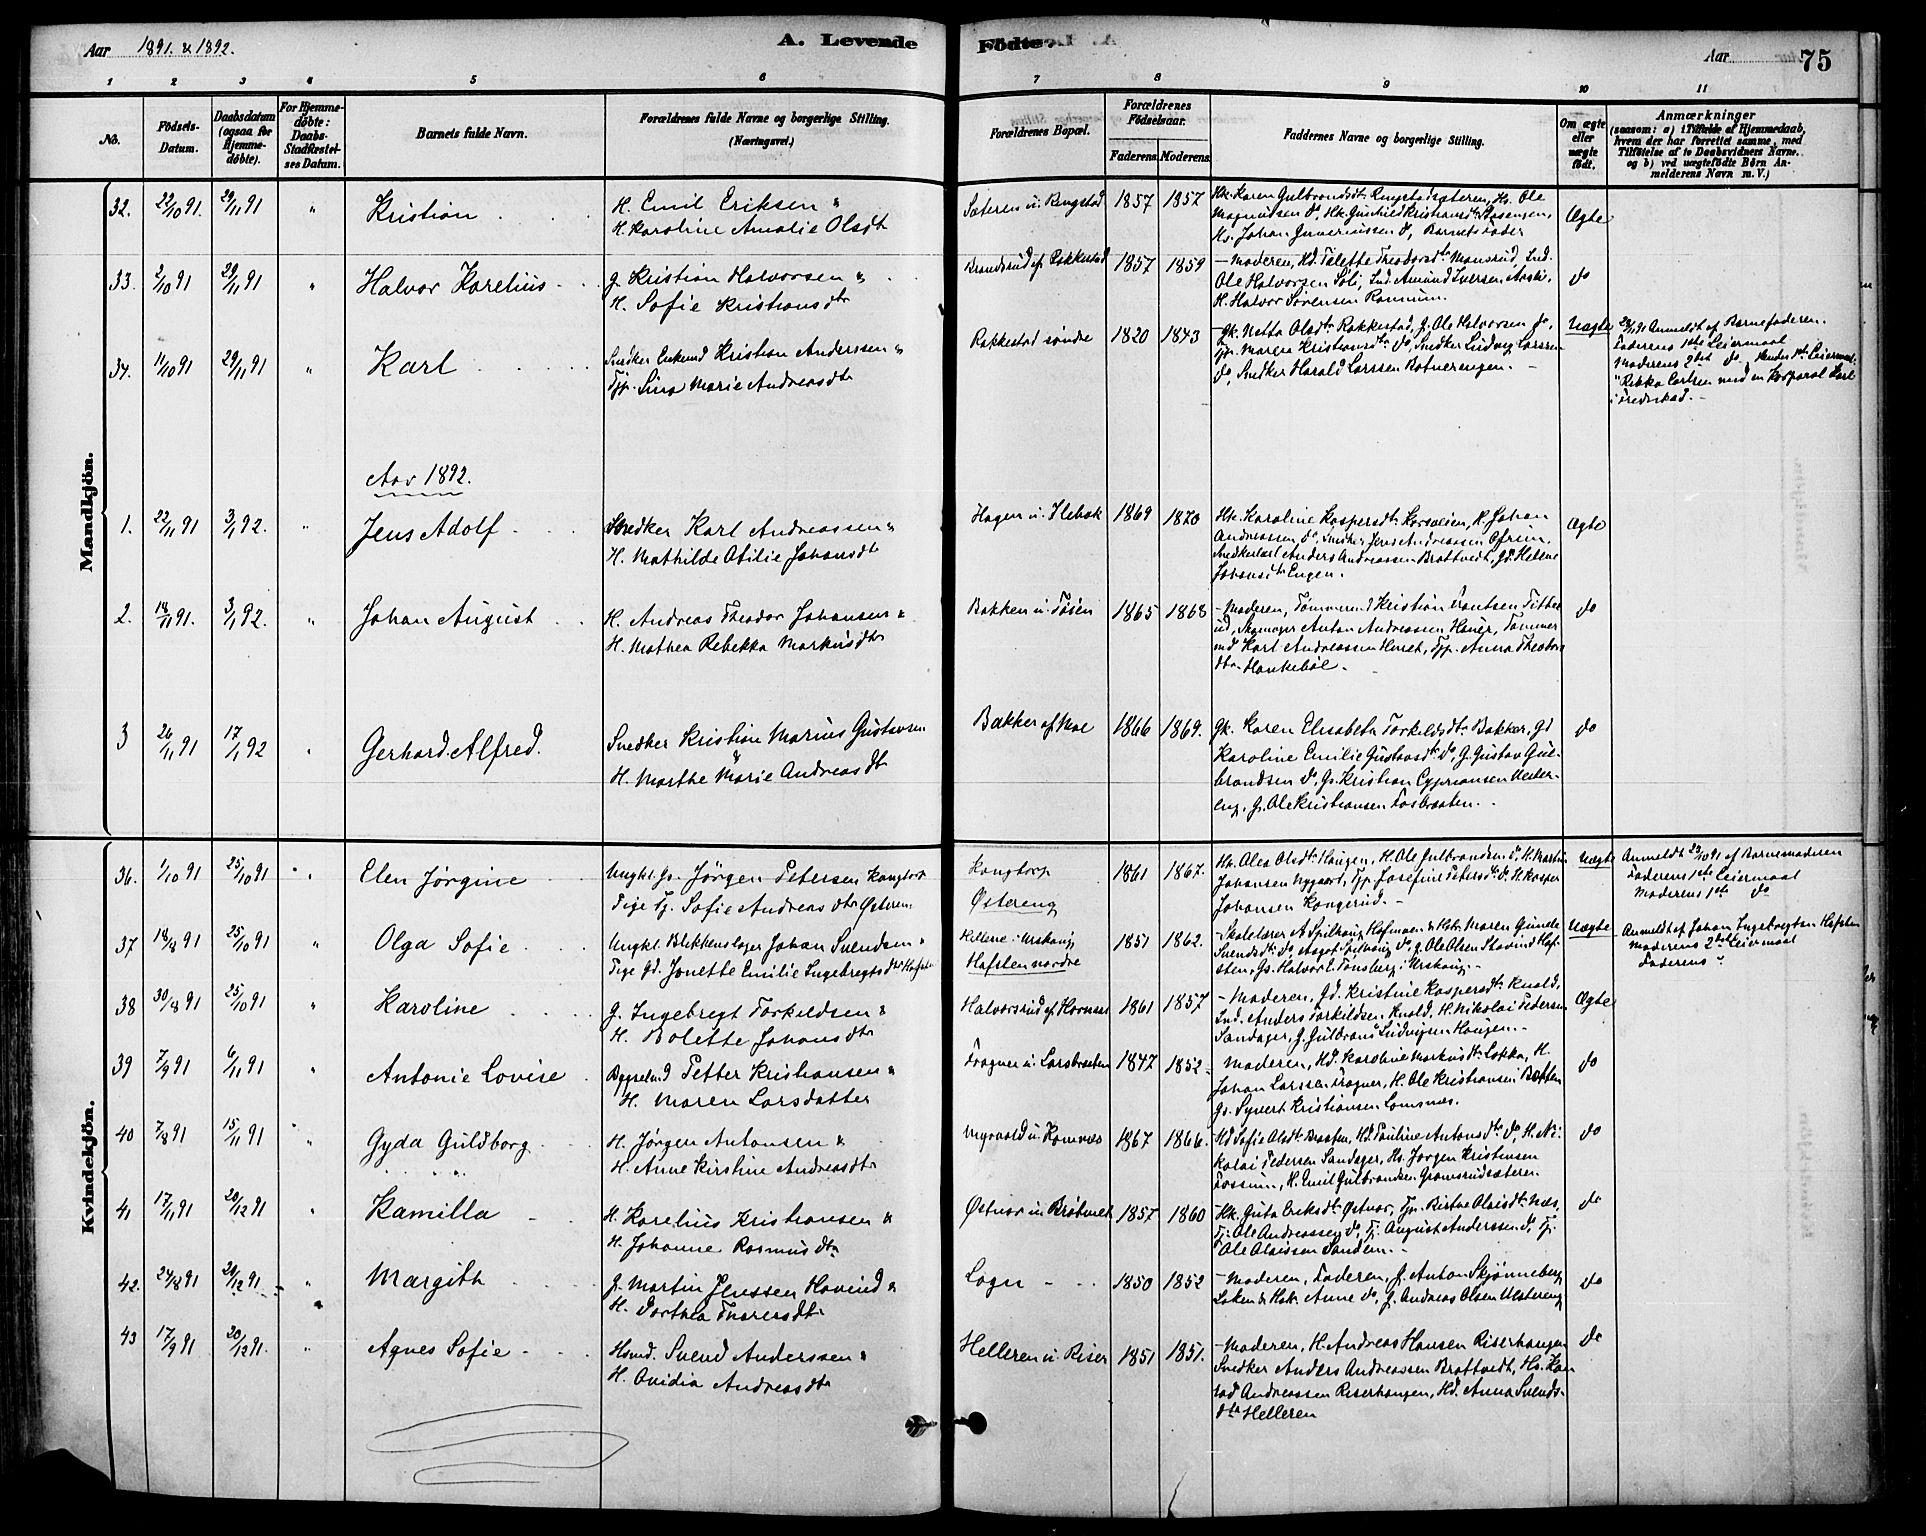 Aar 1891. & 1892.
A. Levende
Födte.
Aar
75
1
2
3
4
5
6
7
8
9
10
11
No.
Födsels-
Datum.
Daabsdatum
(ogsaa for
Hjemme-
döbte).
For Hjemme-
döbte:
Daabs-
Stadfæstel-
ses Datum.
Barnets fulde Navn.
Forældrenes fulde Navne og borgerlige Stilling.
(Næringsvei.)
Forældrenes Bopæl.
Forældrenes
Födselsaar.
Faderens.
Moderens.
Faddernes Navne og borgerlige Stilling.
Om ægte
eller
uægte
födt.
Anmærkninger
(saasom: a) i Tilfælde af Hjemmedaab,
hvem der har forrettet samme, med
Tilföielse af to Daabsvidners Navne.
og b) ved uægtefödte Börn An-
melderens Navn m. V.)
Mandkjön.
32. 22/10 91. 29/11 91 " Kristian
H. Emil Eriksen "
H. Karoline Amalie Olsdtr
Sæteren u. Ringstad 1857 1857
Hk. Karen Gulbrandsdtr Ringstadsæteren, Hs. Ole
Magnussen do, Hk. Gunhild Kristiansdtr Rosengen,
Hs. Johan do, Barnets Fader
Ægte
33. 2/10 91 29/11 91 " Halvor Karelius
g. Kristian Halvorsen "
H. Sofie Kristiansdtr
Brandsrud af Rakkestad 1857 1859
- Moderen, Hd. Theodorsdtr Monsrud, Ind.
Ole Halvorsen Sôli, Ind. Amund Iversen
H. Halvor Sörensen Romnim.
do
34. 11/10 91 29/11 91 " Karl
Snedker Enkemd Kristian Anderssen "
Tjp. Lina Marie Andreasdtr
Rakkestad söndre 1820 1843
- Gk. Netta Olsdtr Rakkestad, G. Ole Halvorsen do,
Tjp. Maren Kristiansdtr do, Snedker Ludvig Larssen
do, Snedker Harald Larssen
Uægte
Anmeldt af Barnefaderen.
Faderens 1ste Leiermaal
Moderens 2det do. Hendes 1ste Leiermaal
Rikka Carlsen med en Korporal Karl
i Fredrikstad. -
Aar 1892.
1. 22/11 91 3/1 92. " Jens Adolf
Snedker Karl Andreassen "
H. Mathilde Otilie Johansdtr
Hagen u. Ilebæk 1869 1870
Hk. Karoline Kaspersdtr Korsveien, H. Johan
Andreassen do, Snedker Jens Andreassen
Anders Andreassen Brattvedt, Gd. Helene
Johansdtr Engen.
Ægte
2. 14/11 91. 3/1 92. " Johan August
H. Andreas Theodor Johansen "
H. Mathea Rebekka Markusdtr
Bakken u. Tösen 1865 1868
- Moderen, Tömmermd Kristian Frantsen Titte-
rud, Skomager Anton Andreassen Tömmer-
md Karl Andreassen Tjp. Anna Theodors-
dtr Hankeböl. -
do
3 26/11 91 17/1 92 " Gerhard Alfred.
Snedker Kristian Marius Gustavsen
"
H. Marthe Marie Andreasdtr
Bakker af Moe 1866 1869.
Gk. Karen Elisabeth Torkildsdtr Bakker, Gd
Karoline Emilie Gustavsdtr do, G. Gustav Gul-
brandsen do, Gs. Kristian Cyprianssen Uester-
eng, G. Ole Kristiansen Fosbraaten.
do
Kvindekjön.
36. 1/10 91 25/10 91 " Elen Jörgine
Ungkl. Gs. Jörgen Petersen Kongtorp
Pige Tj. Sofie Andreasdtr Östereng
Kongtorp
Östereng
1861 1867.
Hk. Olea Olsdtr Haugen, H. Ole Gulbrandsen do, H. Martin
Johansen Nygaard, Tjp. Josefine Petersdtr do, H. Kasper
Johansen Kongerud. -
Uægte
Anmeldt 23/10 91 af Barnemoderen
Faderens 1ste Leiermaal
Moderens 1ste do
37 18/8 91 25/10 91 " Olga Sofie
Ungkl. Blikkenslager Johan Svendsen "
Pige Gd. Jonette Emilie Ingebregtsdtr Hafsten
Killene i Urskoug
Hafsten nordre
1851 1862.
- Skolelærer A. Spilhaug Hofmoen & Hstr Maren Gunde
Svendsdtr do, Aagot Spilhaug do, G. Ole Olsen Hof-
sten, Gs. Halvor E. Tonsberg i Urskoug. -
Uægte
Anmeldt af Johan Ingebregtsen Hafsten
Moderens 2det Leiermaal
Faderens "
38 30/8 91 25/10 91 " Karoline
G. Ingebregt Torkildsen "
H. Bolette Johansdtr
Halvorsrud af Hornæs 1861 1857
- Moderen, Gd. Kristine Kaspersdtr Knold,
Ind. Anders Torkildsen Knold, H. Nikolai Pedersen
Sandager, G. Gulbrand Ludvigsen Haugen. -
Ægte
39 7/9 91 6/11 91 " Antonie Lovise
Petter Kristiansen "
H. Maren Larsdatter
Fragner u. Larsbraaten 1847 1852.
- Moderen, Hd. Karoline Markusdtr Løkka, H.
Johan Larssen Fragner, H. Ole Kristiansen Botten
Gs. Syvert Kristiansen Lomsnes.
do
40 7/8 91 15/11 91 " Gyda Guldborg
H. Jörgen Antonsen "
H. Anne Kirstine Andreasdtr
Myrvold u. Komnæs 1867 1866.
Hd. Sofie Olsdtr Braaten, Hd. Pauline Antonsdtr do, H. Ni-
kolai Pedersen Sandager, Hs. Jörgen Kristensen
Fossum, H. Emil Gulbrandsen Gramsrudsæteren.
do
41 17/11 91 20/12 91 " Kamilla
H. Karelius Kristiansen "
H. Johanne Rasmusdtr
Östnor u. Brötvedt 1857 1860
- Hk. Guta Eriksdtr Östnor, Tjp. Birthe Olaisdtr Næs,
Tj. Ole Andreassen do, Tj. August Anderssen do, Tj.
Ole Olaissen Sandem. -
do
42. 24/8 91 20/12 91. " Margith
G. Martin Jenssen Hovind "
H. Dorthea Thoresdtr
Sogn 1850 1852
- Moderen, Faderen, G. Anton Skjönneberg
Løken & Hstr. Anne do, G. Andreas Olsen Uestereng
do
43 17/9 91 20/12 91. " Agnes Sofie
Hsmd. Svend Anderssen "
H. Ovidia Andreasdtr
Helleren u. Riser 1851 1851.
- Moderen, H. Andreas Hansen Riserhaugen
Snedker Anders Andreassen Brattvedt, Hs. Kon-
rad Andreassen Riserhaugen, Hd. Anna Svends-
dtr Helleren
do